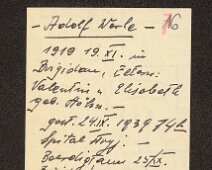 - Adolf Werle - No
1919 19. XI. in
Brigidau, Eltern:
Valentin u Elisabeth
geb. Höhn. -
gest. 24. IX. 1939 14h
Spital Stryj -
Beerdigt am 25/IX.